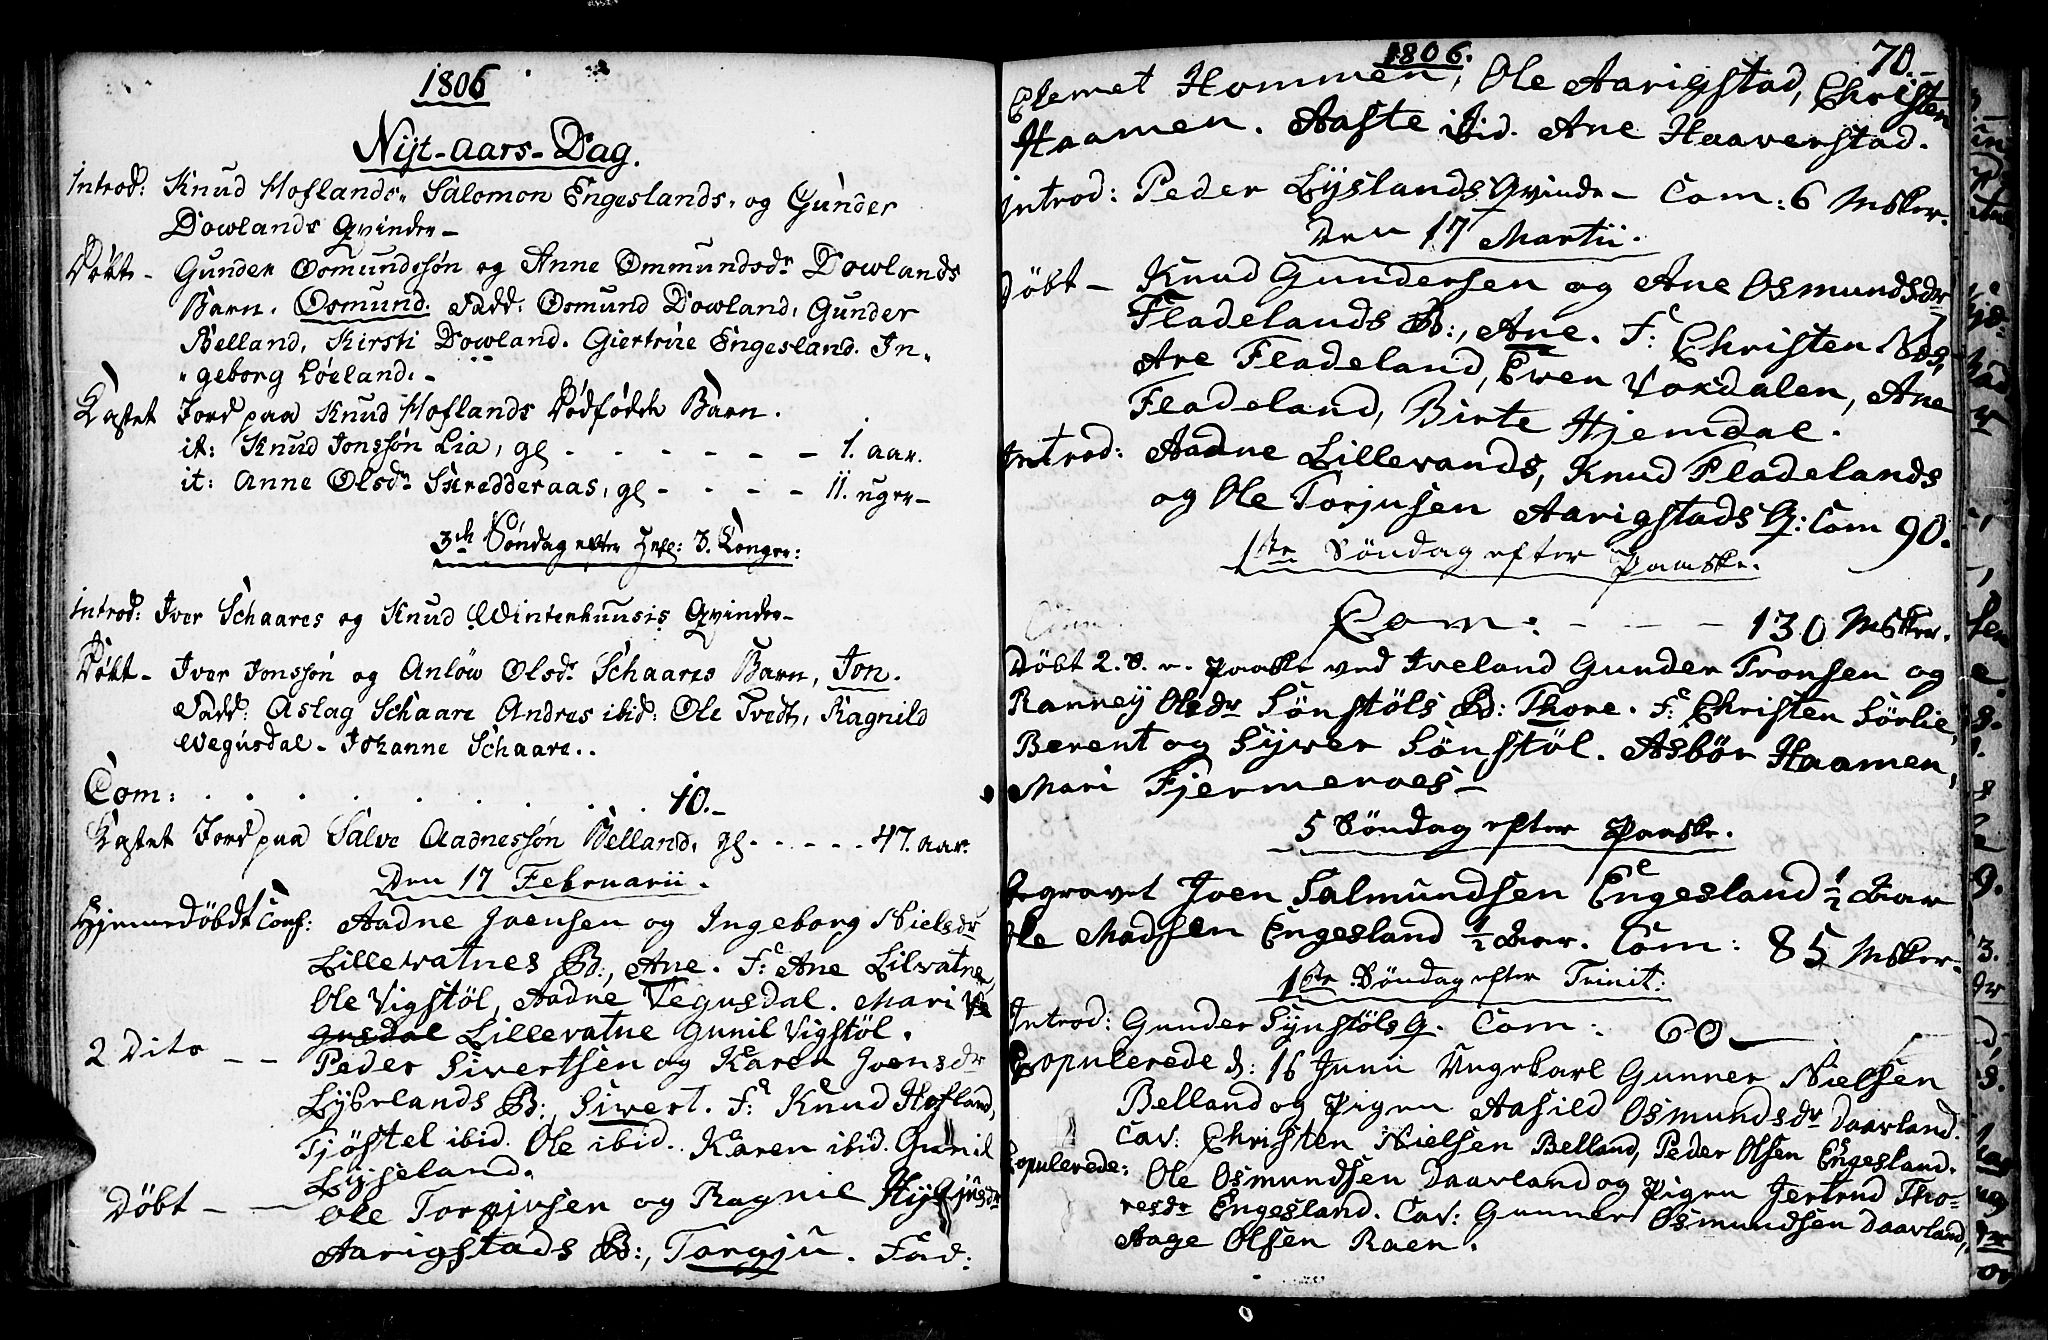 1806
Nijt-aars-Dag.
Introd: Knud Hoflands, Salomon Engeslands, og Gunder
Dowlands Qvinder-
Döbt- Gunder Osmundssón og Anne Ommundsdr Dowlands
Barn. Osmund. Fadd: Osmund Dowland, Gunder
Belland, Kirsti Dowland. Giertrúe Engesland. In„
„geborg Löeland.-
Kastet Jord paa Knud Hoflands Dödfödde Barn.
it: Knud Jonssön Lia, gl - - - - - - 1. aar.
it: Anne Olsdr Skredderaas, gl - - - - 11. uger-
3de Söndag efter Hel: 3. Konger:
Introd: Iver Schaares og Knud Winterhuusis Qvinder-
Döbt- Iver Jonssön og Anlöw Olsdr Schaares Barn, Jon.
Fadd: Aslag Schaare Andres ibid: Ole Tvedt, Ragnild
Wegusdal- Johanne Schaare..
Com: . . . . . . . . . 10.-
Kastet Jord paa Salve Aadnessön Belland, gl- . . . . 47. aar.
Den 17 Februarii.
Hjemmedöbdt Conf: Aadne Joensen og Ingeborg Nielsdr
Lillevatnes B:, Ane. F: Ane Lilvatne,
Ole Vigstöl, Aadne Vegusdal. Mari Ve
gusdal Lillevatne Gunil Vigstöl.
2 Dito - - Peder Sivertsen og Karen Joensdr
Lyserlands B:, Sivert. F: Knud Hofland,
Tjöstel ibid. Ole ibid. Karen ibid. Gunil
Lysseland.
Döbt - - Ole Torgjusen og Ragnil
Aarigstads B:, Torgju. Fad:
1806. 70.-
Clemet Hommen, Ole Aarigstad, Christen
Haamen. Aaste ibid. Ane Haaverstad.
Introd: Peder Lyslands Qvinde- Com: 6 Msker.
Den 17 Martii.
Döbt- Knud Gundersen og Ane Osmundsdr
Fladelands B:, Ane. F: Christen
Are Fladeland, Even Vordalen, Ane
Fladeland, Birte Hjemdal.
Introd: Aadne Lillevands, Knud Fladelands
og Ole Torjusen Aarigstads Q: Com 90.
1ste Söndag efter Paaske.
Com: - - - 130 Msker.
Döbt 2. S. e. Paaske ved Iveland Gunder Tronsen og
Ranney Olsdr Sönstöls B: Thore. F: Christen Sörlie,
Berent og Syver Sönstöl. Asbör Haamen,
Mari Fjermeroes-
5 Söndag efter Paaske.
Begravet Joen Salmundsen Engesland ½ Aar
Ole Madsen Engesland ½ Aar. Com: 85 Msker-
1ste Söndag efter Trinit:
Introd: Gunder Synstöls Q. Com: 60.
Copulerede d: 16 Junii Ungekarl Gunner Nielsen
Belland og Pigen Aasild Osmundsdr Daavland.
Cav: Christen Nielsen Belland, Peder Olsen Engesland.
Copulerede: Ole Osmundsen Daavland og Pigen Jertrud Tho-
resdr Engesland. Cav: Gunner Osmundsen Daavland,
Aage Olsen Raen.